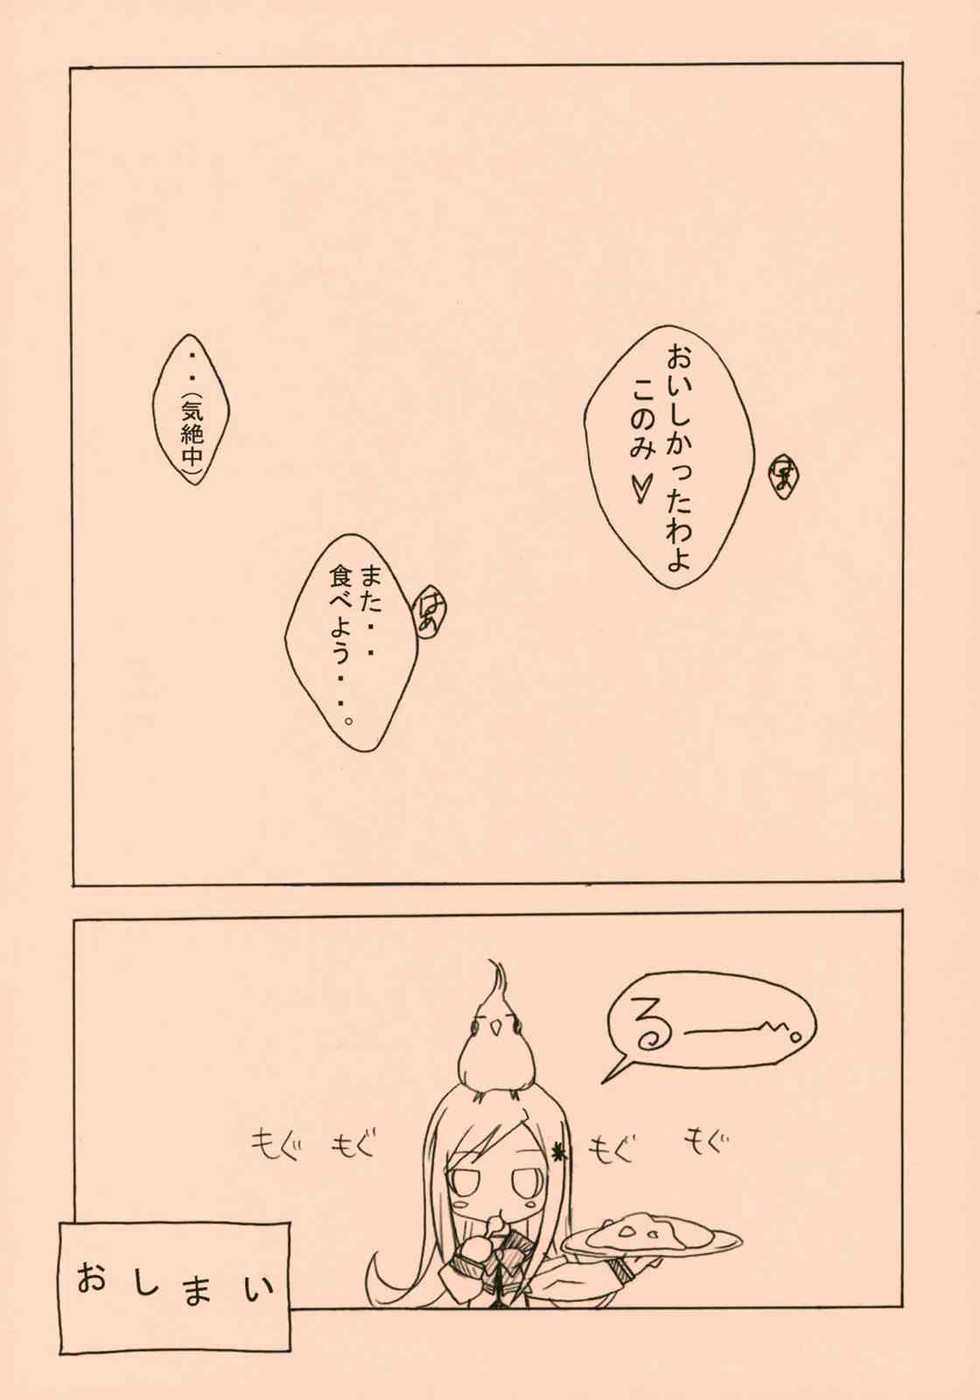 はぁ
おいしかったわよ
このみ♡
はぁ
また・・
食べよう・・。
・・(気絶中)
るーーー。
もぐ
もぐ
もぐ
もぐ
おしまい